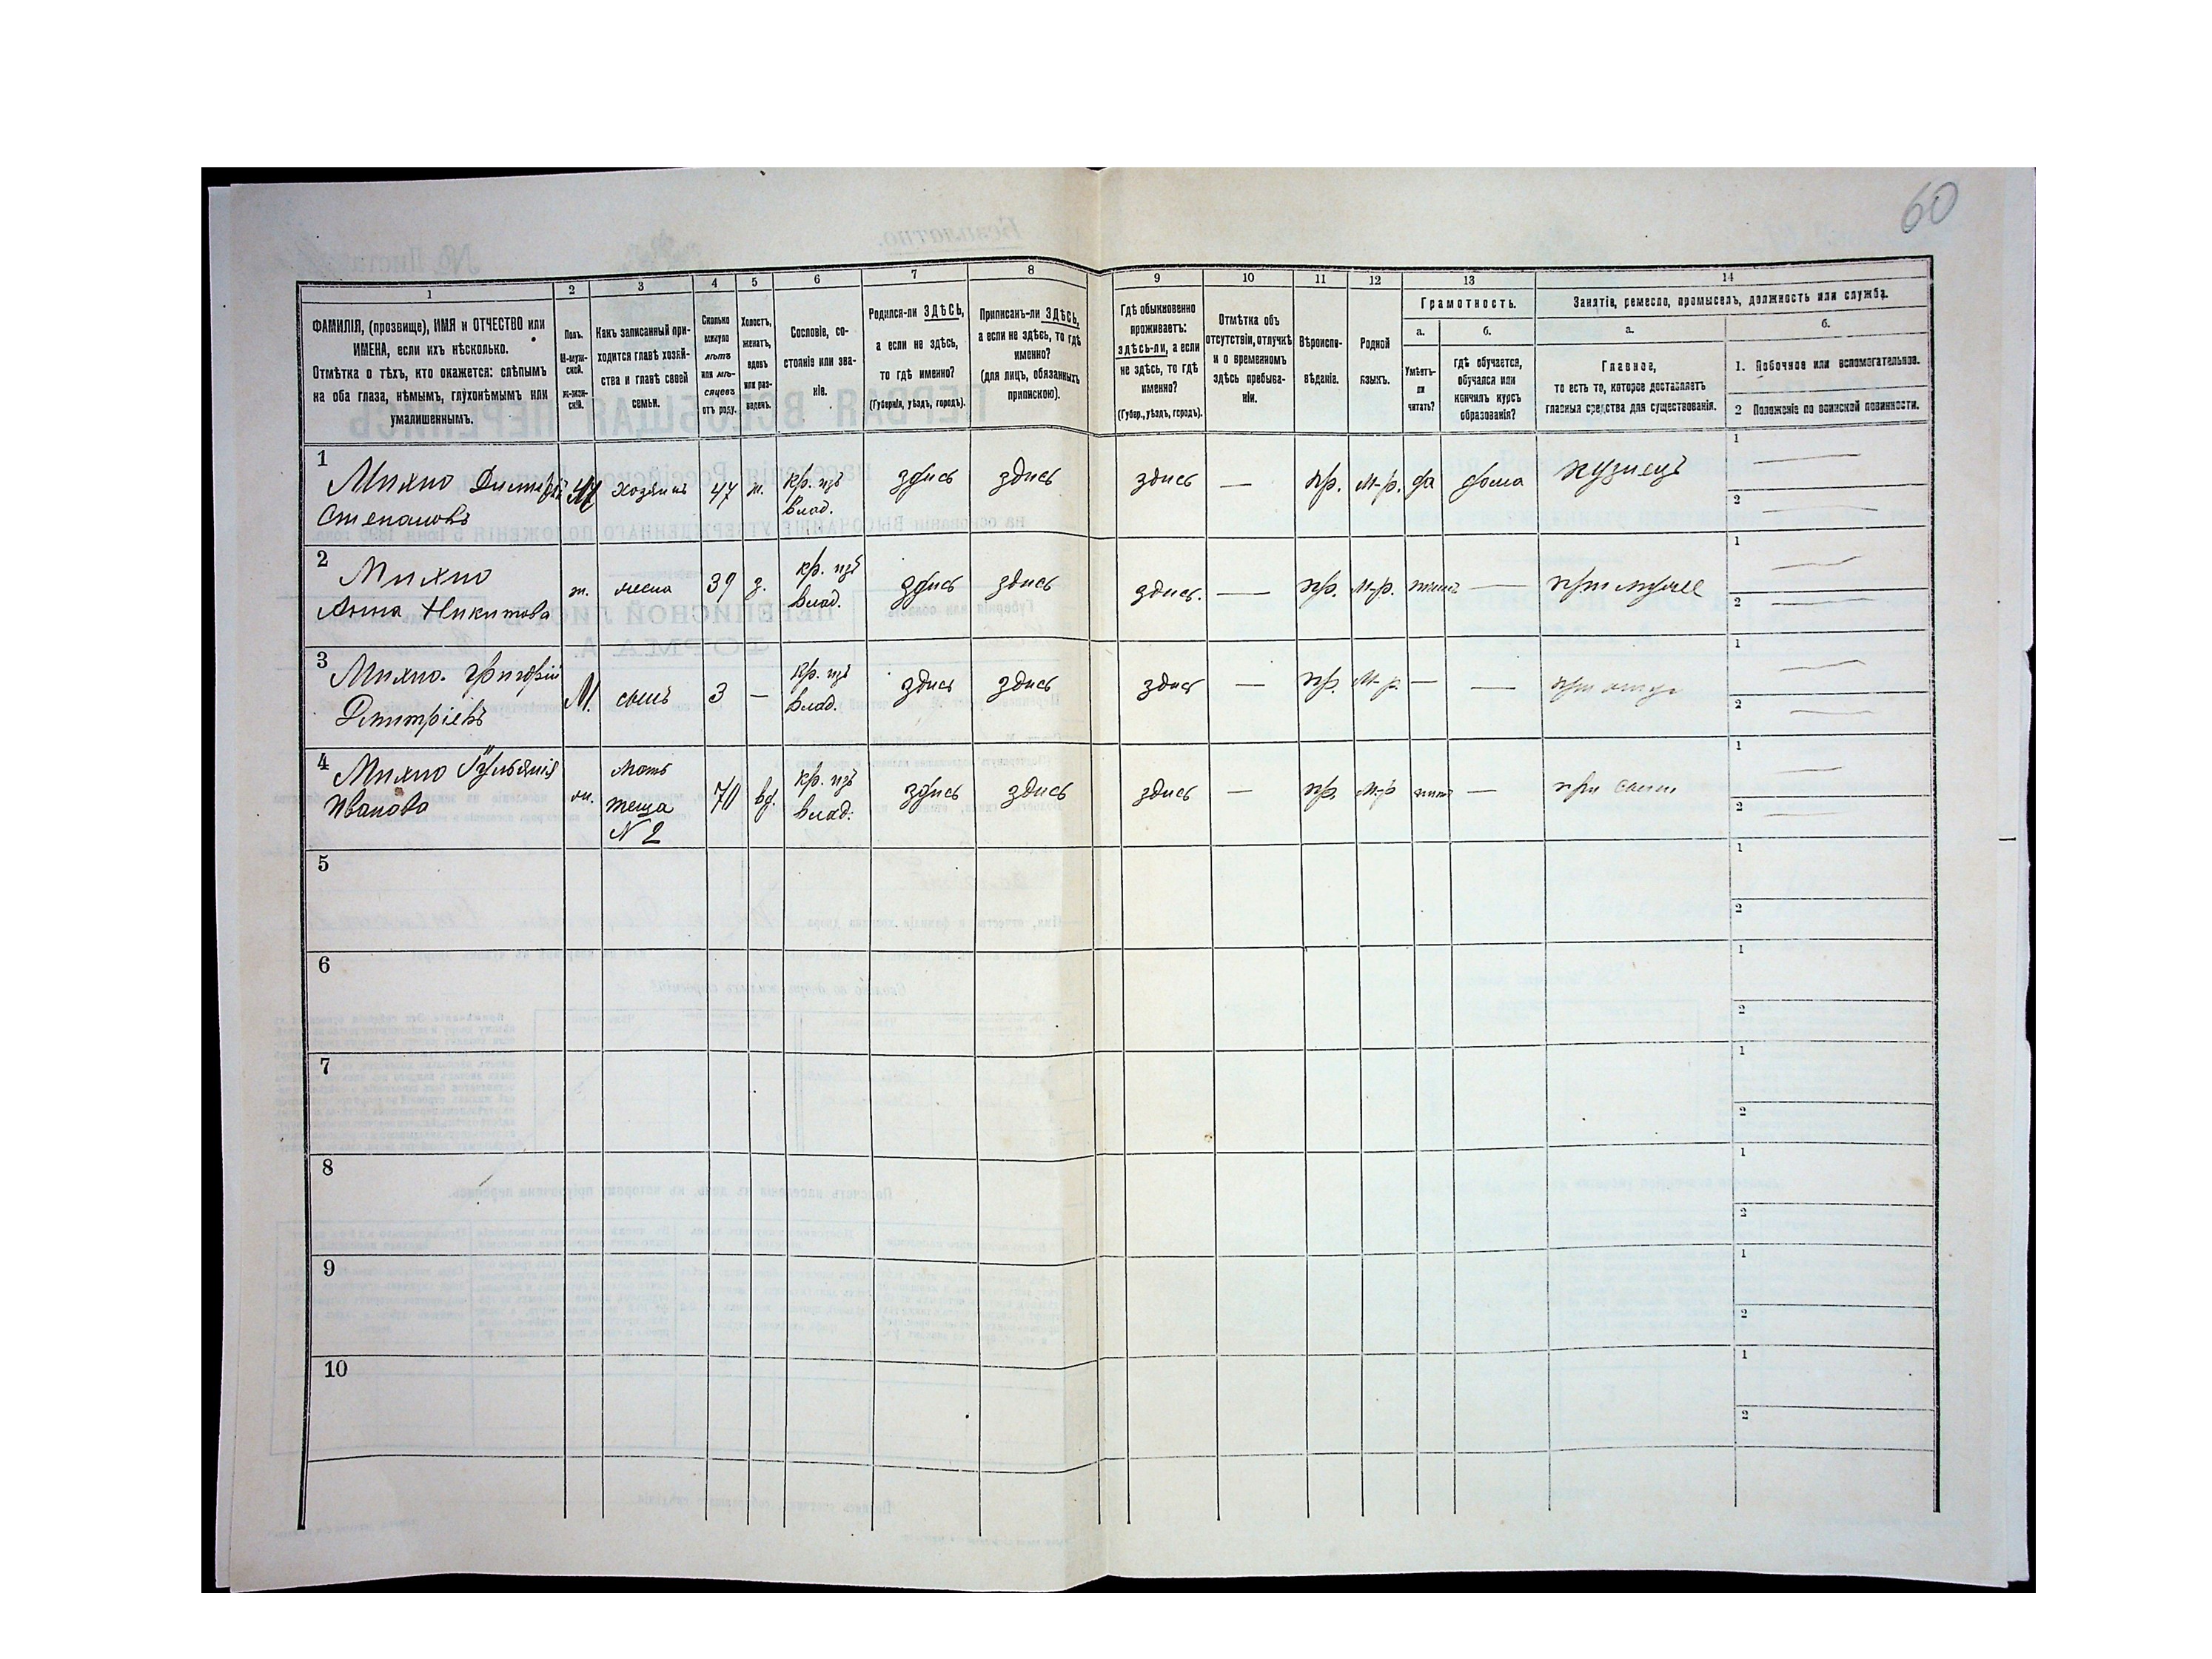 60
1 2 3 4 5 6 7 8 9 10 11 12 13 14
ФАМИЛІЯ, (прозвище), ИМЯ и ОТЧЕСТВО или
ИМЕНА, если ихъ нѣсколько.
Отмѣтка о тѣхъ, кто окажется: слѣпымъ
на оба глаза, нѣмымъ, глухонѣмымъ или
умалишеннымъ.
Полъ.
М-муж-
ской.
Ж-жен-
скій.
Какъ записанный при-
ходится главѣ хозяй-
ства и главѣ своей
семьи.
Сколько
минуло
лѣтъ
или мѣ-
сяцевъ
отъ роду.
Холостъ,
женатъ,
вдовъ
или раз-
веденъ.
Сословіе, со-
стояніе или зва-
ніе.
Родился-ли ЗДѢСЬ,
а если не здѣсь,
то гдѣ именно?
(Губернія, уѣздъ, городъ).
Приписанъ-ли ЗДѢСЬ,
а если не здѣсь, то гдѣ
именно?
(для лицъ, обязанныхъ
припискою).
Гдѣ обыкновенно
проживаетъ:
здѣсь-ли, а если
не здѣсь, то гдѣ
именно?
(Губер., уѣздъ, городъ).
Отмѣтка объ
отсутствіи, отлучкѣ
и о временномъ
здѣсь пребыва-
ніи.
Вѣроиспо-
вѣданіе.
Родной
языкъ.
Грамотность.
а.
Умѣетъ-
ли
читать?
б.
гдѣ обучается,
обучался или
кончилъ курсъ
образованія?
Занятіе, ремесло, промыселъ, должность или служба.
а.
Главное,
то есть то, которое доставляетъ
главныя средства для существованія.
б.
1. Побочное или вспомогательное.
2 Положеніе по воинской повинности.
1 Михно Дмитрій М хозяинъ 47 ж. кр. изъ здѣсь здѣсь здѣсь — пр. М-р. да дома кузнецъ 1 —
Степановъ влад. 2 —
2 Михно ж. жена 39 з. кр. изъ здѣсь здѣсь здѣсь. — пр. М-р. — при мужѣ 1 —
Анна Никитова влад. 2 —
3 Михно Григорій М. сынъ 3 — кр. изъ здѣсь здѣсь здѣсь — пр. М-р. — — при отцѣ 1 —
Дмитріевъ влад. 2 —
4 Михно Іульянія ж. мать 70 вд. кр. изъ здѣсь здѣсь здѣсь — пр. М-р — при 1 —
Иванова теща влад. 2 —
N 2
5 1
2
6 1
2
7 1
2
8 1
2
9 1
2
10 1
2